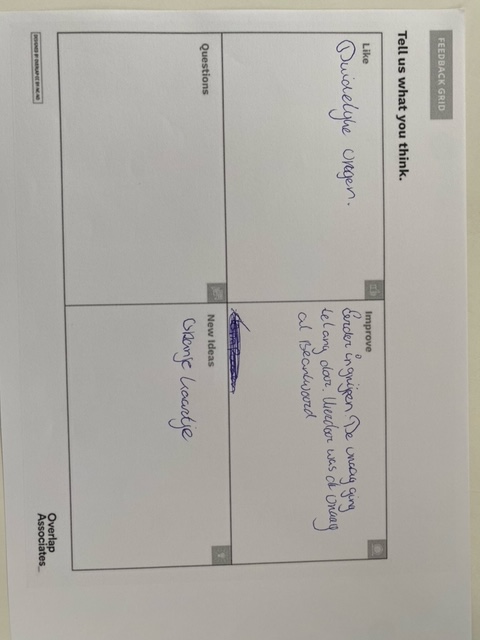 FEEDBACK GRID
Tell us what you think.
Like
Duidelijke vragen.
Improve
Eerder ingrijpen. De vraag ging
te lang door. Hierdoor was de vraag
al Beantwoord
Questions
New Ideas
oranje kaartje
Overlap
Associates_